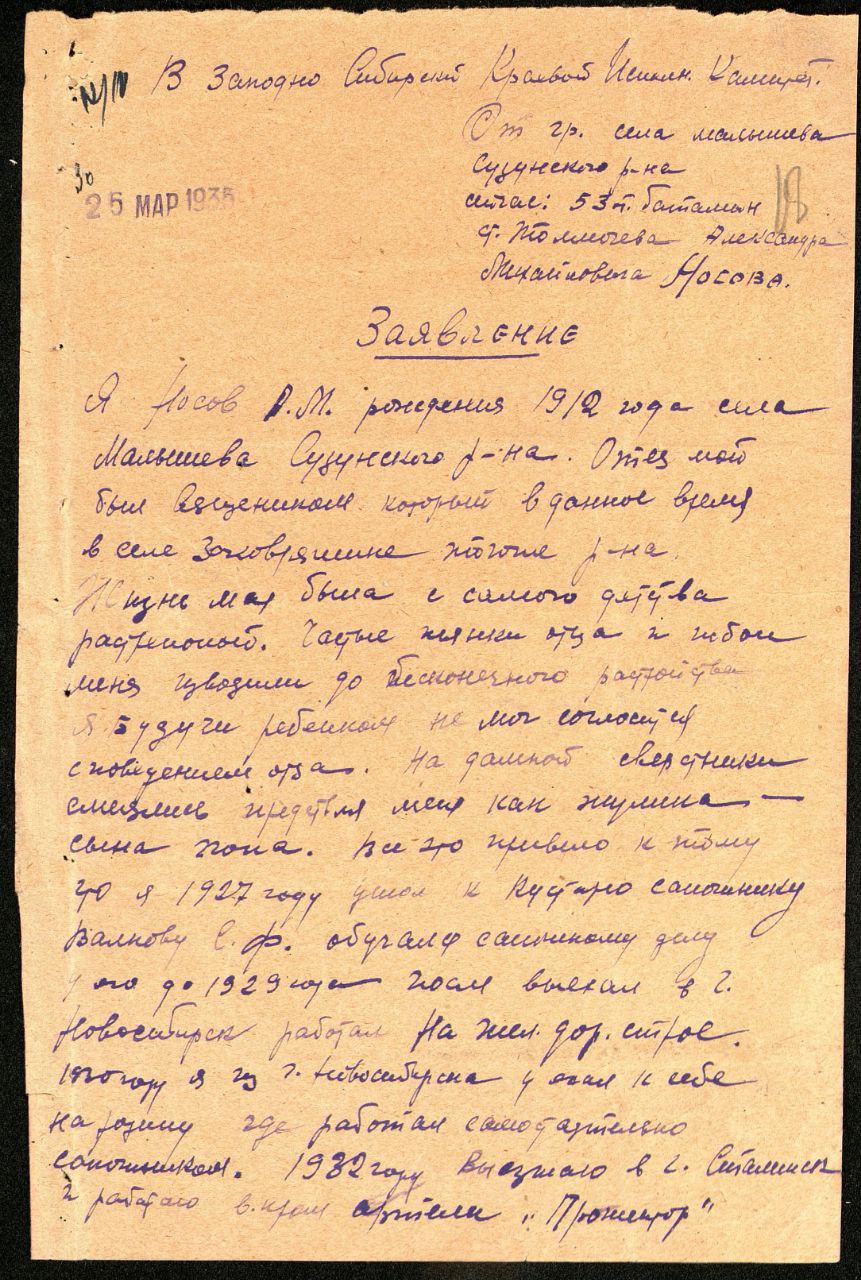 В Западно Сибирский Краевой Исполн. Комитет.
От гр. села малышева
Сузунского р-на
сейчас: 53 т. батальон
30
25 МАР 1935
18
ст. Толмачева Александра
Михайловича Носова.
Заявление
Я Носов А.М. рождения 1912 года села
Малышева Сузунского р-на. Отец мой
был священником который в данное время
в селе тогоже р-на.
Жизнь моя была с самого детства
Частые пьянки отца и побои
меня изводили до бесконечного растройства
Я будучи ребенком не мог согласится
с поведением отца. На дальной сверстники
смеялись меня как
сына попа. Все это привело к тому
что я 1927 году ушол к Кустарю сапожнику
Валкову С.Ф. обучался сапожному делу
у его до 1929 года После выехал в г.
Новосибирск работал На жел. дор. строе.
1930 году я из г. Новосибирска уехал к себе
на родину где работал самостоятельно
сапожником. 1932 году выезжаю в г. Сталинск
и работаю в. пром артели „Прожектор"